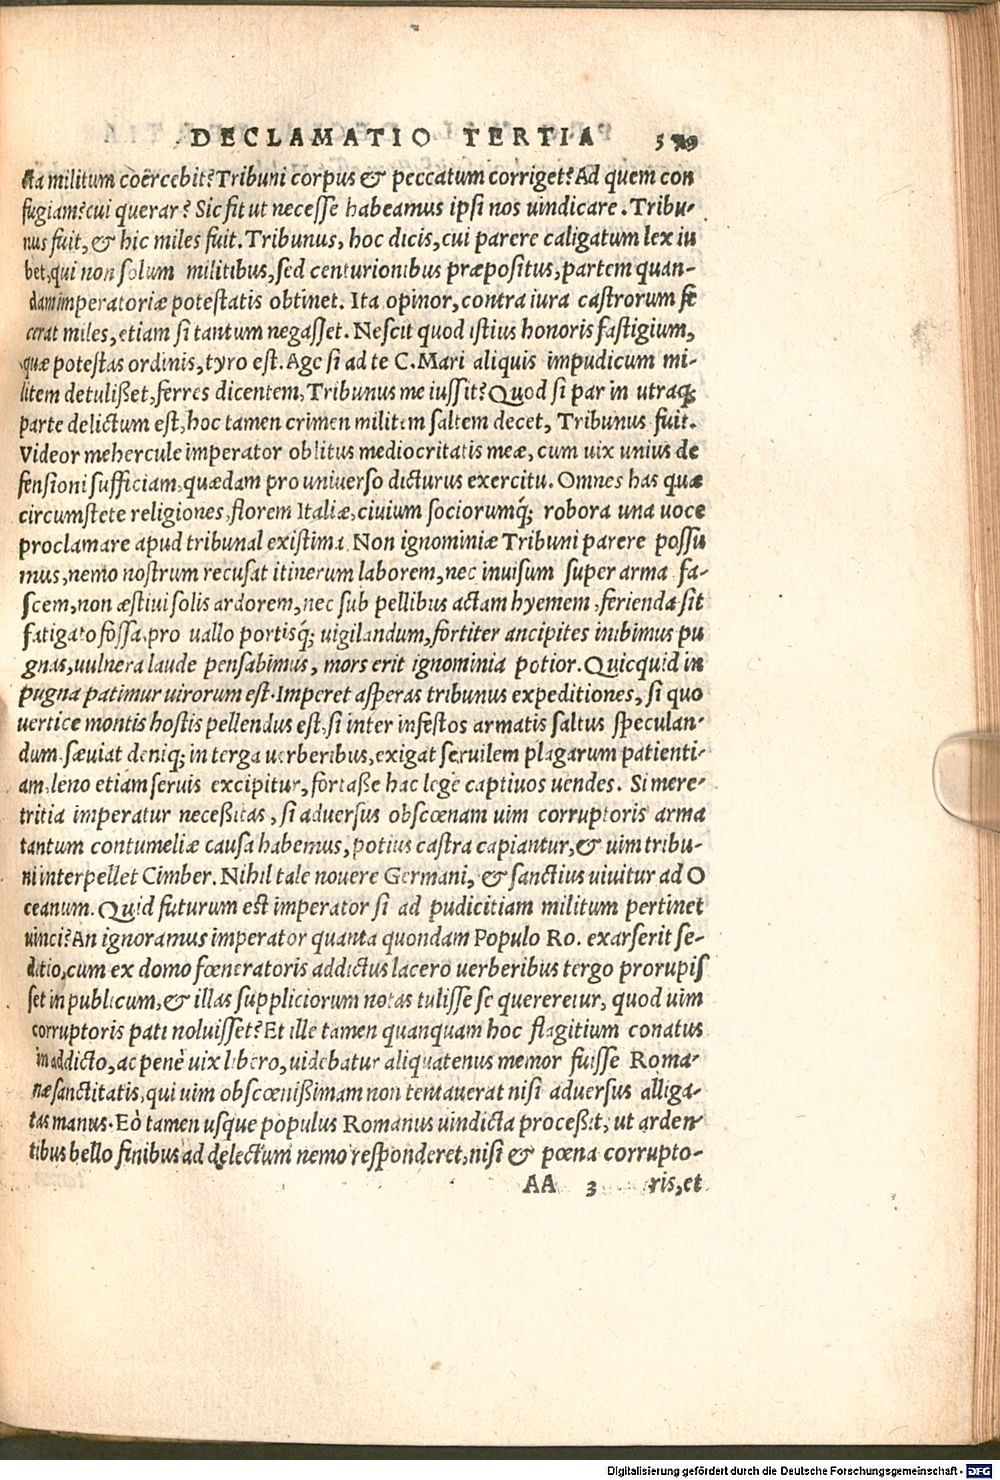 DECLAMATIO TERTIA 579
sta militum coërcebit? Tribuni corpus & peccatum corriget? Ad quem con
fugiam? cui querar? Sic fit ut necesse habeamus ipsi nos uindicare. Tribu-
nus fuit, & hic miles fuit. Tribunus, hoc dicis, cui parere caligatum lex iu
bet, qui non solum militibus, sed centurionibus præpositus, partem quan-
dam imperatoriæ potestatis obtinet. Ita opinor, contra iura castrorum fe
cerat miles, etiam si tantum negasset. Nescit quod istius honoris fastigium,
quæ potestas ordinis, tyro est. Age si ad te C. Mari aliquis impudicum mi-
litem detulißet, ferres dicentem, Tribunus me iussit? Quod si par in utraq;
parte delictum est, hoc tamen crimen militem saltem decet, Tribunus fuit.
Videor mehercule imperator oblitus mediocritatis meæ, cum uix unius de
fensioni sufficiam, quædam pro uniuerso dicturus exercitu. Omnes has quæ
circumstete religiones, florem Italiæ, ciuium sociorumq́; robora una uoce
proclamare apud tribunal existima. Non ignominiæ Tribuni parere possu
mus, nemo nostrum recusat itinerum laborem, nec inuisum super arma fa-
scem, non æstiui solis ardorem, nec sub pellibus actam hyemem, ferienda sit
fatigato fossa, pro uallo portisq́; uigilandum, fortiter ancipites inibimus pu
gnas, uulnera laude pensabimus, mors erit ignominia potior. Quicquid in
pugna patimur uirorum est. Imperet asperas tribunus expeditiones, si quo
uertice montis hostis pellendus est, si inter infestos armatis saltus speculan-
dum. sæuiat deniq; in terga uerberibus, exigat seruilem plagarum patienti-
am, leno etiam seruis excipitur, fortaße hac lege captiuos uendes. Si mere-
tritia imperatur neceßitas, si aduersus obscœnam uim corruptoris arma
tantum contumeliæ causa habemus, potius castra capiantur, & uim tribu-
ni interpellet Cimber. Nihil tale nouere Germani, & sanctius uiuitur ad O
ceanum. Quid futurum est imperator si ad pudicitiam militum pertinet
uinci? An ignoramus imperator quanta quondam Populo Ro. exarserit se-
ditio, cum ex domo fœneratoris addictus lacero uerberibus tergo prorupis
set in publicum, & illas suppliciorum notas tulisse se quereretur, quod uim
corruptoris pati noluisset? Et ille tamen quanquam hoc flagitium conatus
in addicto, ac penè uix libero, uidebatur aliquatenus memor fuisse Roma-
næ sanctitatis, qui uim obscœnißimam non tentauerat nisi aduersus alliga-
tas manus. Eò tamen usque populus Romanus uindicta proceßit, ut arden-
tibus bello finibus ad delectum nemo responderet, nisi & pœna corrupto-
AA 3 ris, et
Digitalisierung gefördert durch die Deutsche Forschungsgemeinschaft - DFG